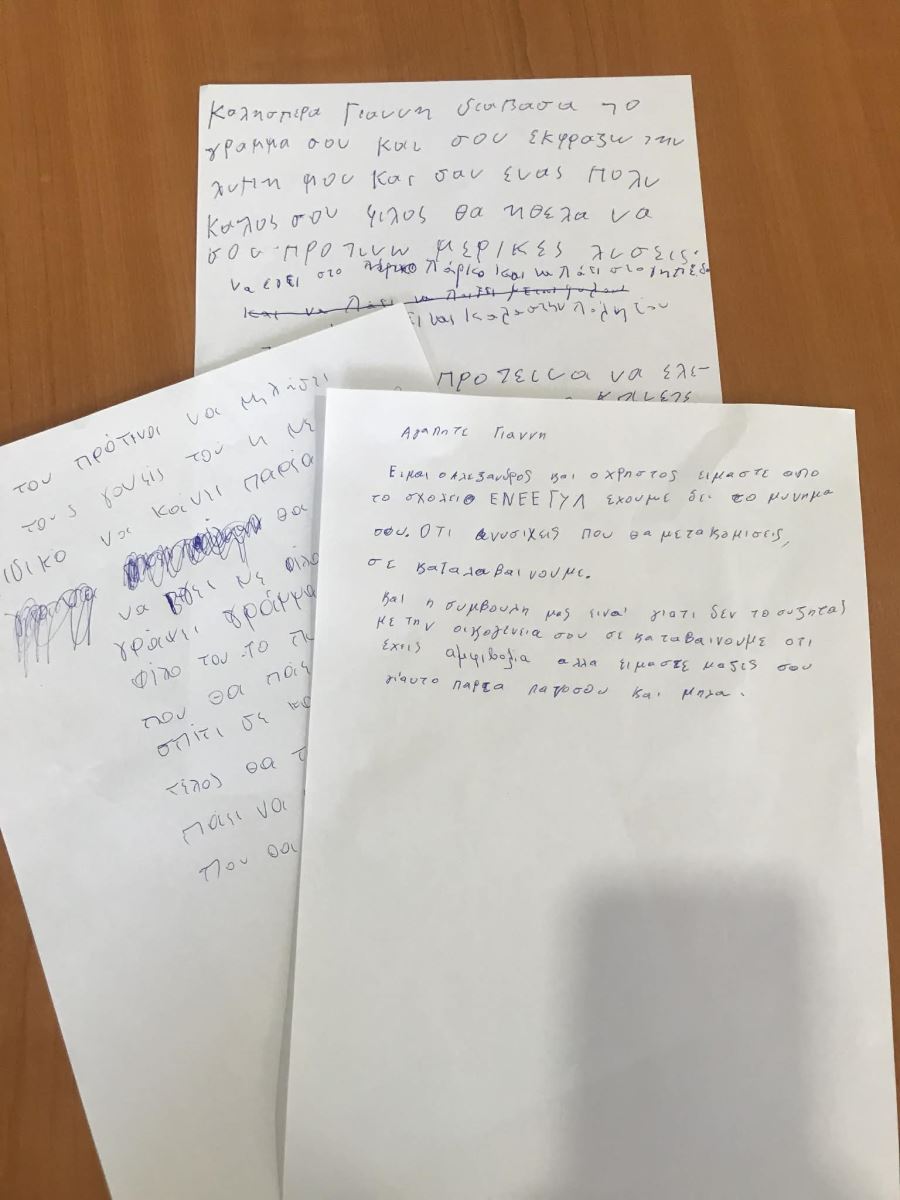 Καλησπερα Γιαννη διαβασα το
γραμμα σου και σου εκφραζω την
λυπη μου και σαν ενας πολυ
καλος σου φιλος θα ηθελα να
σου προτινω μερικες λυσεις.
να βγει στο Πάρκο και να Πάει στο γηπεδο
και να Πάει να Παιξει με τους φιλους
ειναι καλα στην πόλη του
προτεινα να ελε-
του πρότιναι να μηλήσει
τους γονείς του η με
ιδικό να κάνει παρέα
θα
να βγει με φίλο
γράψει γράμμα
φίλο του το
που θα πάει
σπίτι σε
τέλος θα
πάει να
που θα
Αγαπητε Γιαννη
Ειμαι ο Αλεξανδρος και ο χρηστος ειμαστε απο
το σχολειο ΕΝΕΕΓΥΛ εχουμε δει το μυνημα
σου. Οτι ανυσιχεις που θα μετακομισεις,
σε καταλαβαινουμε.
και η συμβουλη μας ειναι γιατι δεν το συζητας
με την οικογένεια σου σε καταβαινουμε οτι
εχεις αμφιβολια αλλα ειμαστε μαζις σου
γι'αυτο παρτα πατοσου και μηλα.